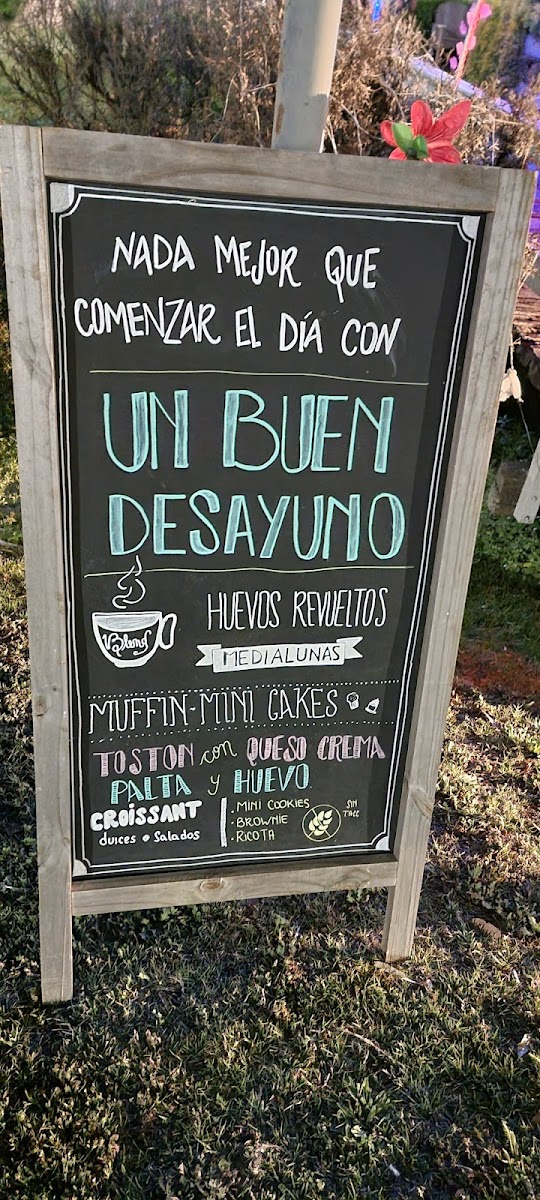 NADA MEJOR QUE
COMENZAR EL DÍA CON
UN BUEN
DESAYUNO
HUEVOS REVUELTOS
MEDIALUNAS
MUFFIN-MINI CAKES
TOSTON con QUESO CREMA
PALTA y HUEVO.
CROISSANT
duices o Salados
· MINI COOKIES
· BROWNIE
· RICOTA
SIN
TACC